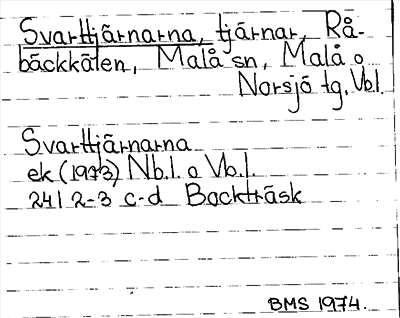 Svarttjärnarna, tjärnar, Rå-
bäckkåten, Malå sn, Malå o
Norsjö tg. Vb.l.
Svarttjärnarna
ek (1973) Nb.l. o Vb.l.
24I 2-3 c-d Bockträsk
BMS 1974.